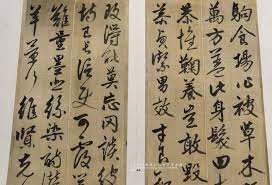 駒食場化被草木
萬方蓋此身髮四大
恭惟鞠養豈敢毀
慕貞潔男效才良
改得能莫忘罔談彼
恃己長信使可覆
難量墨悲絲染詩讚
羊景行維賢克